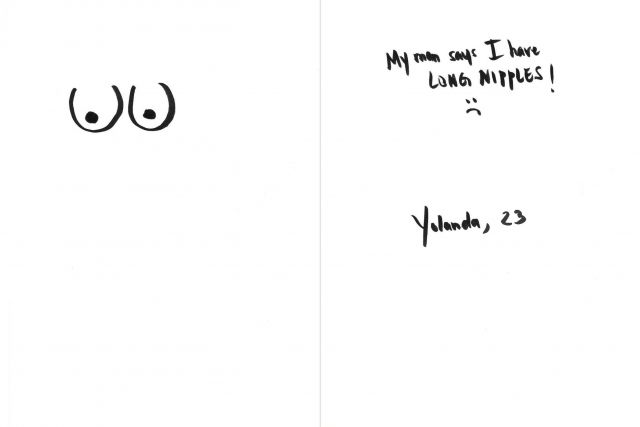 My man says I have
LONG NIPPLES!
Yolanda, 23